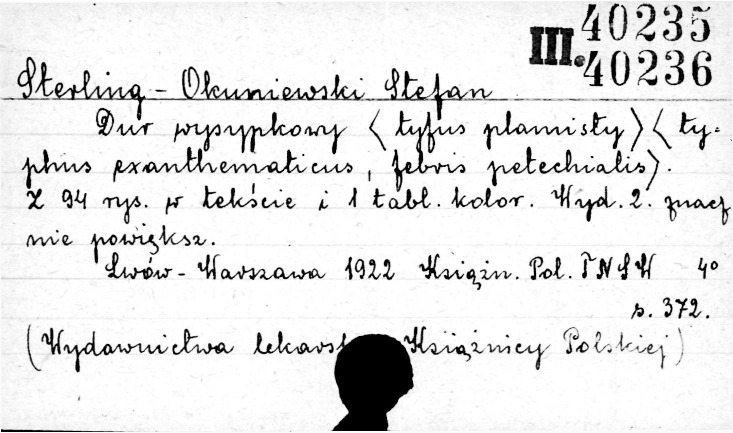 III. 40235
40236
Sterling - Okuniewski Stefan
Dur wysypkowy <tyfus plamisty> <ty=
phus exanthematicus, febris petechialis>.
Z 94 rys. w tekście i 1 tabl. kolor. Wyd. 2. znacz
nie powiększ.
Lwów - Warszawa 1922 Książn. Pol. TNSW 4°
s. 372.
(Wydawnictwa lekarsk Książnicy Polskiej)